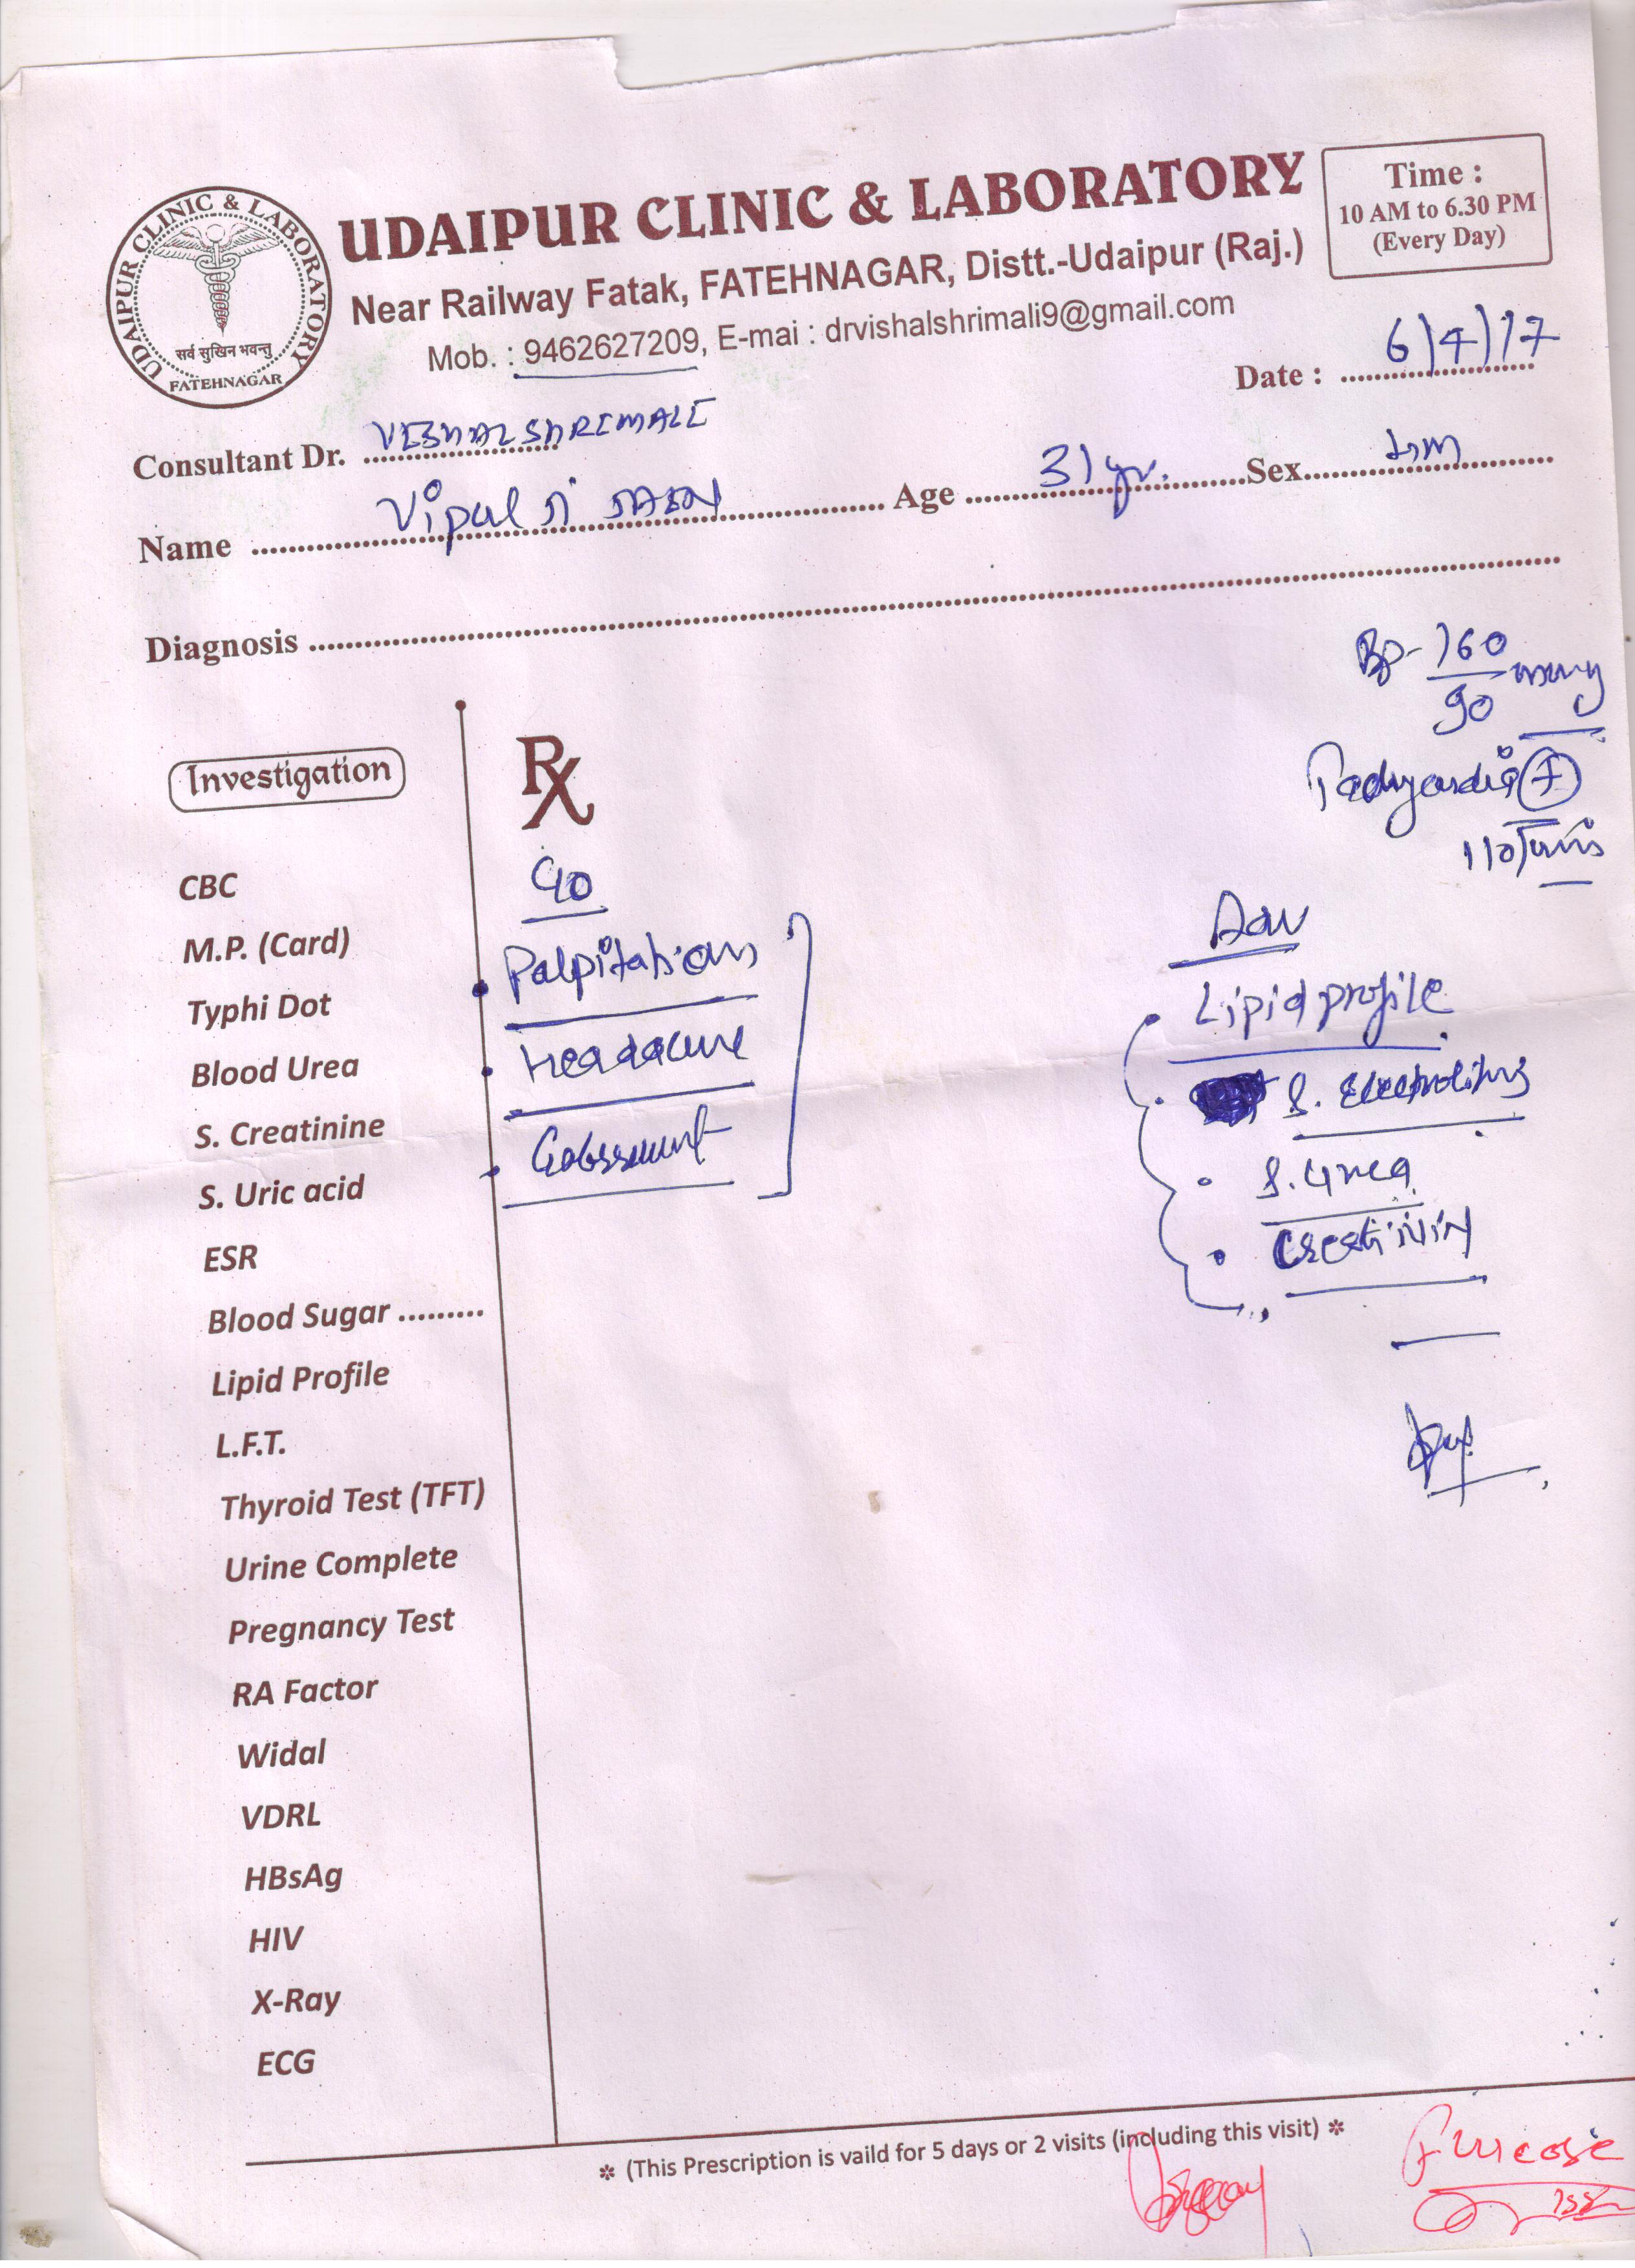 UDAIPUR CLINIC & LABORATORY
सर्व सुखिन भवन्तु
FATEHNAGAR
UDAIPUR CLINIC & LABORATORY
Near Railway Fatak, FATEHNAGAR, Distt.-Udaipur (Raj.)
Mob. : 9462627209, E-mai : drvishalshrimali9@gmail.com
Time :
10 AM to 6.30 PM
(Every Day)
Date : 6/4/17
Consultant Dr.
Name Vipul Age 31 yr. Sex
Diagnosis
BP- 160
90 mmHg
Tachycardia +
110/min
Investigation
Rx
CBC
M.P. (Card)
Typhi Dot
Blood Urea
S. Creatinine
S. Uric acid
ESR
Blood Sugar .........
Lipid Profile
L.F.T.
Thyroid Test (TFT)
Urine Complete
Pregnancy Test
RA Factor
Widal
VDRL
HBsAg
HIV
X-Ray
ECG
C/o
Palpitations
Headache
Adv
Lipid profile
S. Electrolitys
S. Urea
Creatinin
* (This Prescription is vaild for 5 days or 2 visits (including this visit) *